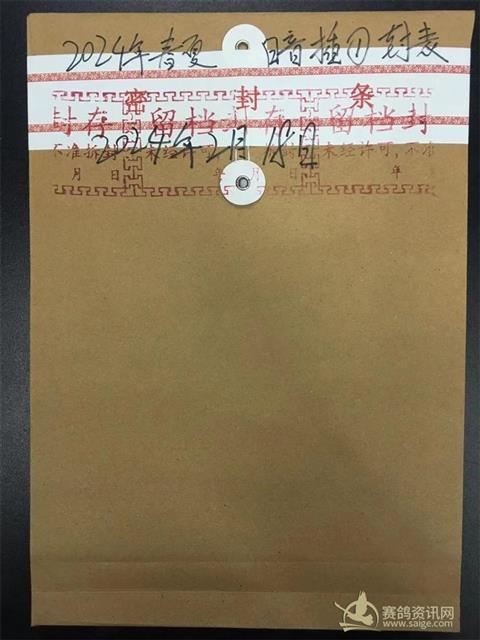 2024年春夏 暗插①封表
密封条
封存 留档封存 留档封
2024年2月18日
不准拆 未经许可 未经许可，不准
月 日 年 月 日 年
赛鸽资讯网
www.saige.com